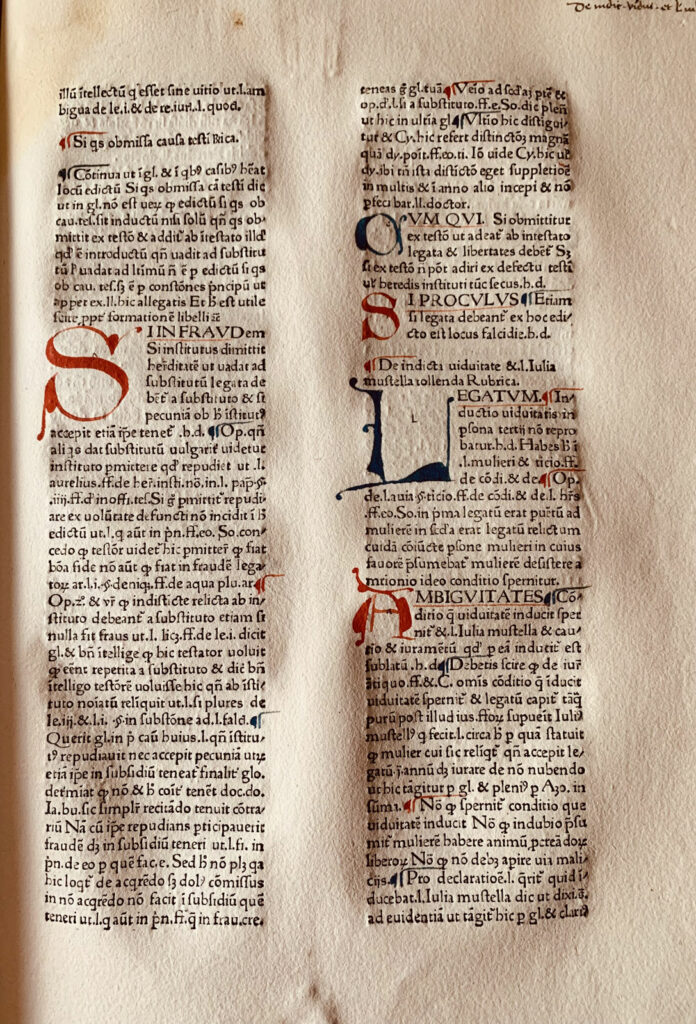 De indic. viduit. et l. iu
illũ ĩtellectũ q̃ esset sine uitio ut.l.am
bigua de le.i.& de re.iuri.l. quod.
Si q̃s obmissa causa testi Rica.
Cõtinua ut ĩ gl.& ĩ qb⁹ casib⁹ hẽat
locũ edictũ Si q̃s obmissa cã testi dic
ut in gl.nõ est ueɤ ꝙ edictũ si q̃s ob
cau.tes.sit inductũ nisi solũ qñ q̃s ob-
mittit ex testõ & addit᷑ ab ĩtestato illđ
qđ ẽ introductũ qñ uadit ad substitu
tũ ꝉ uadat ad ltimũ ñ ẽ p edictũ si q̃s
ob cau. tes.s̃ ẽ p constõnes p̃ncipũ ut
appet ex.ll.hic allegatis Et h̃ est utile
scire ppt᷑ formationẽ libelli
SI IN FRAVDem
Si institutus dimittit
her̃ditatẽ ut uadat ad
substitutũ legata de
bẽt᷑ a substituto & si
pecuniã ob h̃ ĩstitut⁹
accepit etiã ip̃e tenet᷑ .h.d. ¶Op.qñ
ali⁹ dat substitutũ uulgarit᷑ uidetur
instituto pmittere qđ repudiet ut .l.
aurelius.ff.de her.insti.nõ.in.l. pap̃.§.
.iiij.ff.đ inoffi.tes.Si g̃ pmittit᷑ repudi/
are ex uolũtate defuncti nõ incidit ĩ h̃
edictũ ut.l.q aũt in p̃n.ff.eo. So.con-
cedo ꝙ testõr uidet᷑ hic pmitter̃ ꝙ fiat
bõa fide nõ aũt ꝙ fiat in fraudẽ lega/
toɤ ar.l.i.§ deniq̃.ff.de aqua plu.ar.
Op.2̃.& vr̃ ꝙ indisticte relicta ab in/
stituto debeant᷑ a substituto etiam si
nulla fit fraus ut.l. licꝫ.ff.de le.i. dicit
gl.& bñ ĩtellige ꝙ hic testator uoluit
ꝙ eẽnt repetita a substituto & dic bñ
ĩtelligo testõrẽ uoluisse hic qñ ab ĩsti/
tuto noĩatũ reliquit ut.l.si plures de
le.iij.& l.i. .§.in substõne ad.l.fald.¶
Querit gl.in p̃ caũ huius.l.qñ ĩstitu/
t⁹ repudiauit nec accepit pecuniã utɤ
etiã ip̃e in subsidiũ teneat᷑ finalit᷑ glo.
det᷑miat ꝙ nõ & h̃ coit᷑ tenẽt doc.do.
Ia.bu.sic simplr̃ recitãdo tenuit cõtra/
riũ Nã cũ ip̃e repudians pticipauerit
fraudẽ dꝫ in subsidiũ teneri ut.l.fi. in
p̃n.de eo p quẽ fac.e. Sed h̃ nõ plꝫ qa
hic loqt᷑ de acqr̃edo sꝫ dol⁹ cõmissus
in nõ acqr̃edo nõ facit ĩ subsidiũ quẽ
teneri ut.l.q aũt in p̃n.ff.q̃ in frau.cre.
teneas g̃ gl.tuã ¶Veio ad scđaꝫ ptẽ &
op.đ.l.si a substituto.ff.e.So.dic plen⁹
ut hic in ultĩa gl ¶Vltĩo hic distigui/
tur & Cy.hic refert distinctõꝫ magnã
quã dy.poit.ff.eo.ti. Iõ uide Cy.hic uł
dy.ibi tñ ista distictõ eget suppletiõe
in multis & ĩ anno alio incepi & nõ
pfeci bar.ll.doctor.
QVM QVI. Si obmittitur
ex testõ ut adeat᷑ ab intestato
legata & libertates debẽt᷑ Sꝫ
si ex testõ ñ põt adiri ex defectu testi
ut heredis instituti tũc secus.h.d.
SI PROCVLVS ¶Etiam
si legata debeant᷑ ex hoc edi/
cto est locus falcidie.h.d.
¶De indicta uiduitate &.l. Iulia
mustella tollenda Rubrica.
L
LEGATVM. ¶In/
ductio uiduitatis in
psona tertij nõ repro
batur.h.d. Habes h̃ ĩ
.l.mulieri & ticio.ff.
de cõdi.& de ¶Op.
de.l.auia §.ticio.ff.de cõdi.& de.l. hr̃s
.ff.eo.So.in p̃ma legatũ erat puẽtũ ad
mulierẽ in scđa erat legatũ relictum
cuidã cõiũcte psone mulieri in cuius
fauorẽ p̃sumebat᷑ mulierẽ desistere a
mr̃ionio ideo conditio spernitur.
AMBIGVITATES ¶Cõ
ditio q̃ uiduitatẽ inducit sper
nit᷑ & l.Iulia mustella & cau/
tio & iuramẽtũ qđ p eã inducit᷑ est
sublatũ .h.d ¶Debetis scire ꝙ de iur̃
ãtiquo.ff.& C. omĩs cõditio q̃ ĩducit
uiduitatẽ spernit᷑ & legatũ capit᷑ tãq̃
purũ post illud ius.ffoɤ supueit Iuli⁹
mustell⁹ q fecit.l.circa h̃ p quã statuit
ꝙ mulier cui sic reliqt᷑ qñ accepit le/
gatũ ĩ annũ dꝫ iurare de nõ nubendo
ut hic tãgitur p gl.& pleni⁹ p Aꝫo. in
sũma. ¶Nõ ꝙ spernit᷑ conditio que
uiduitatẽ inducit Nõ ꝙ indubio p̃su
mit᷑ mulierẽ habere animũ pcreãdoɤ
liberoɤ Nõ ꝙ nõ debꝫ apire uia mali/
cijs. ¶Pro declaratiõe.l. q̃rit᷑ quid ĩ
ducebat.l.Iulia mustella dic ut dixi.&
ad euidentiã ut tãgit᷑ hic p gl.& clari⁹